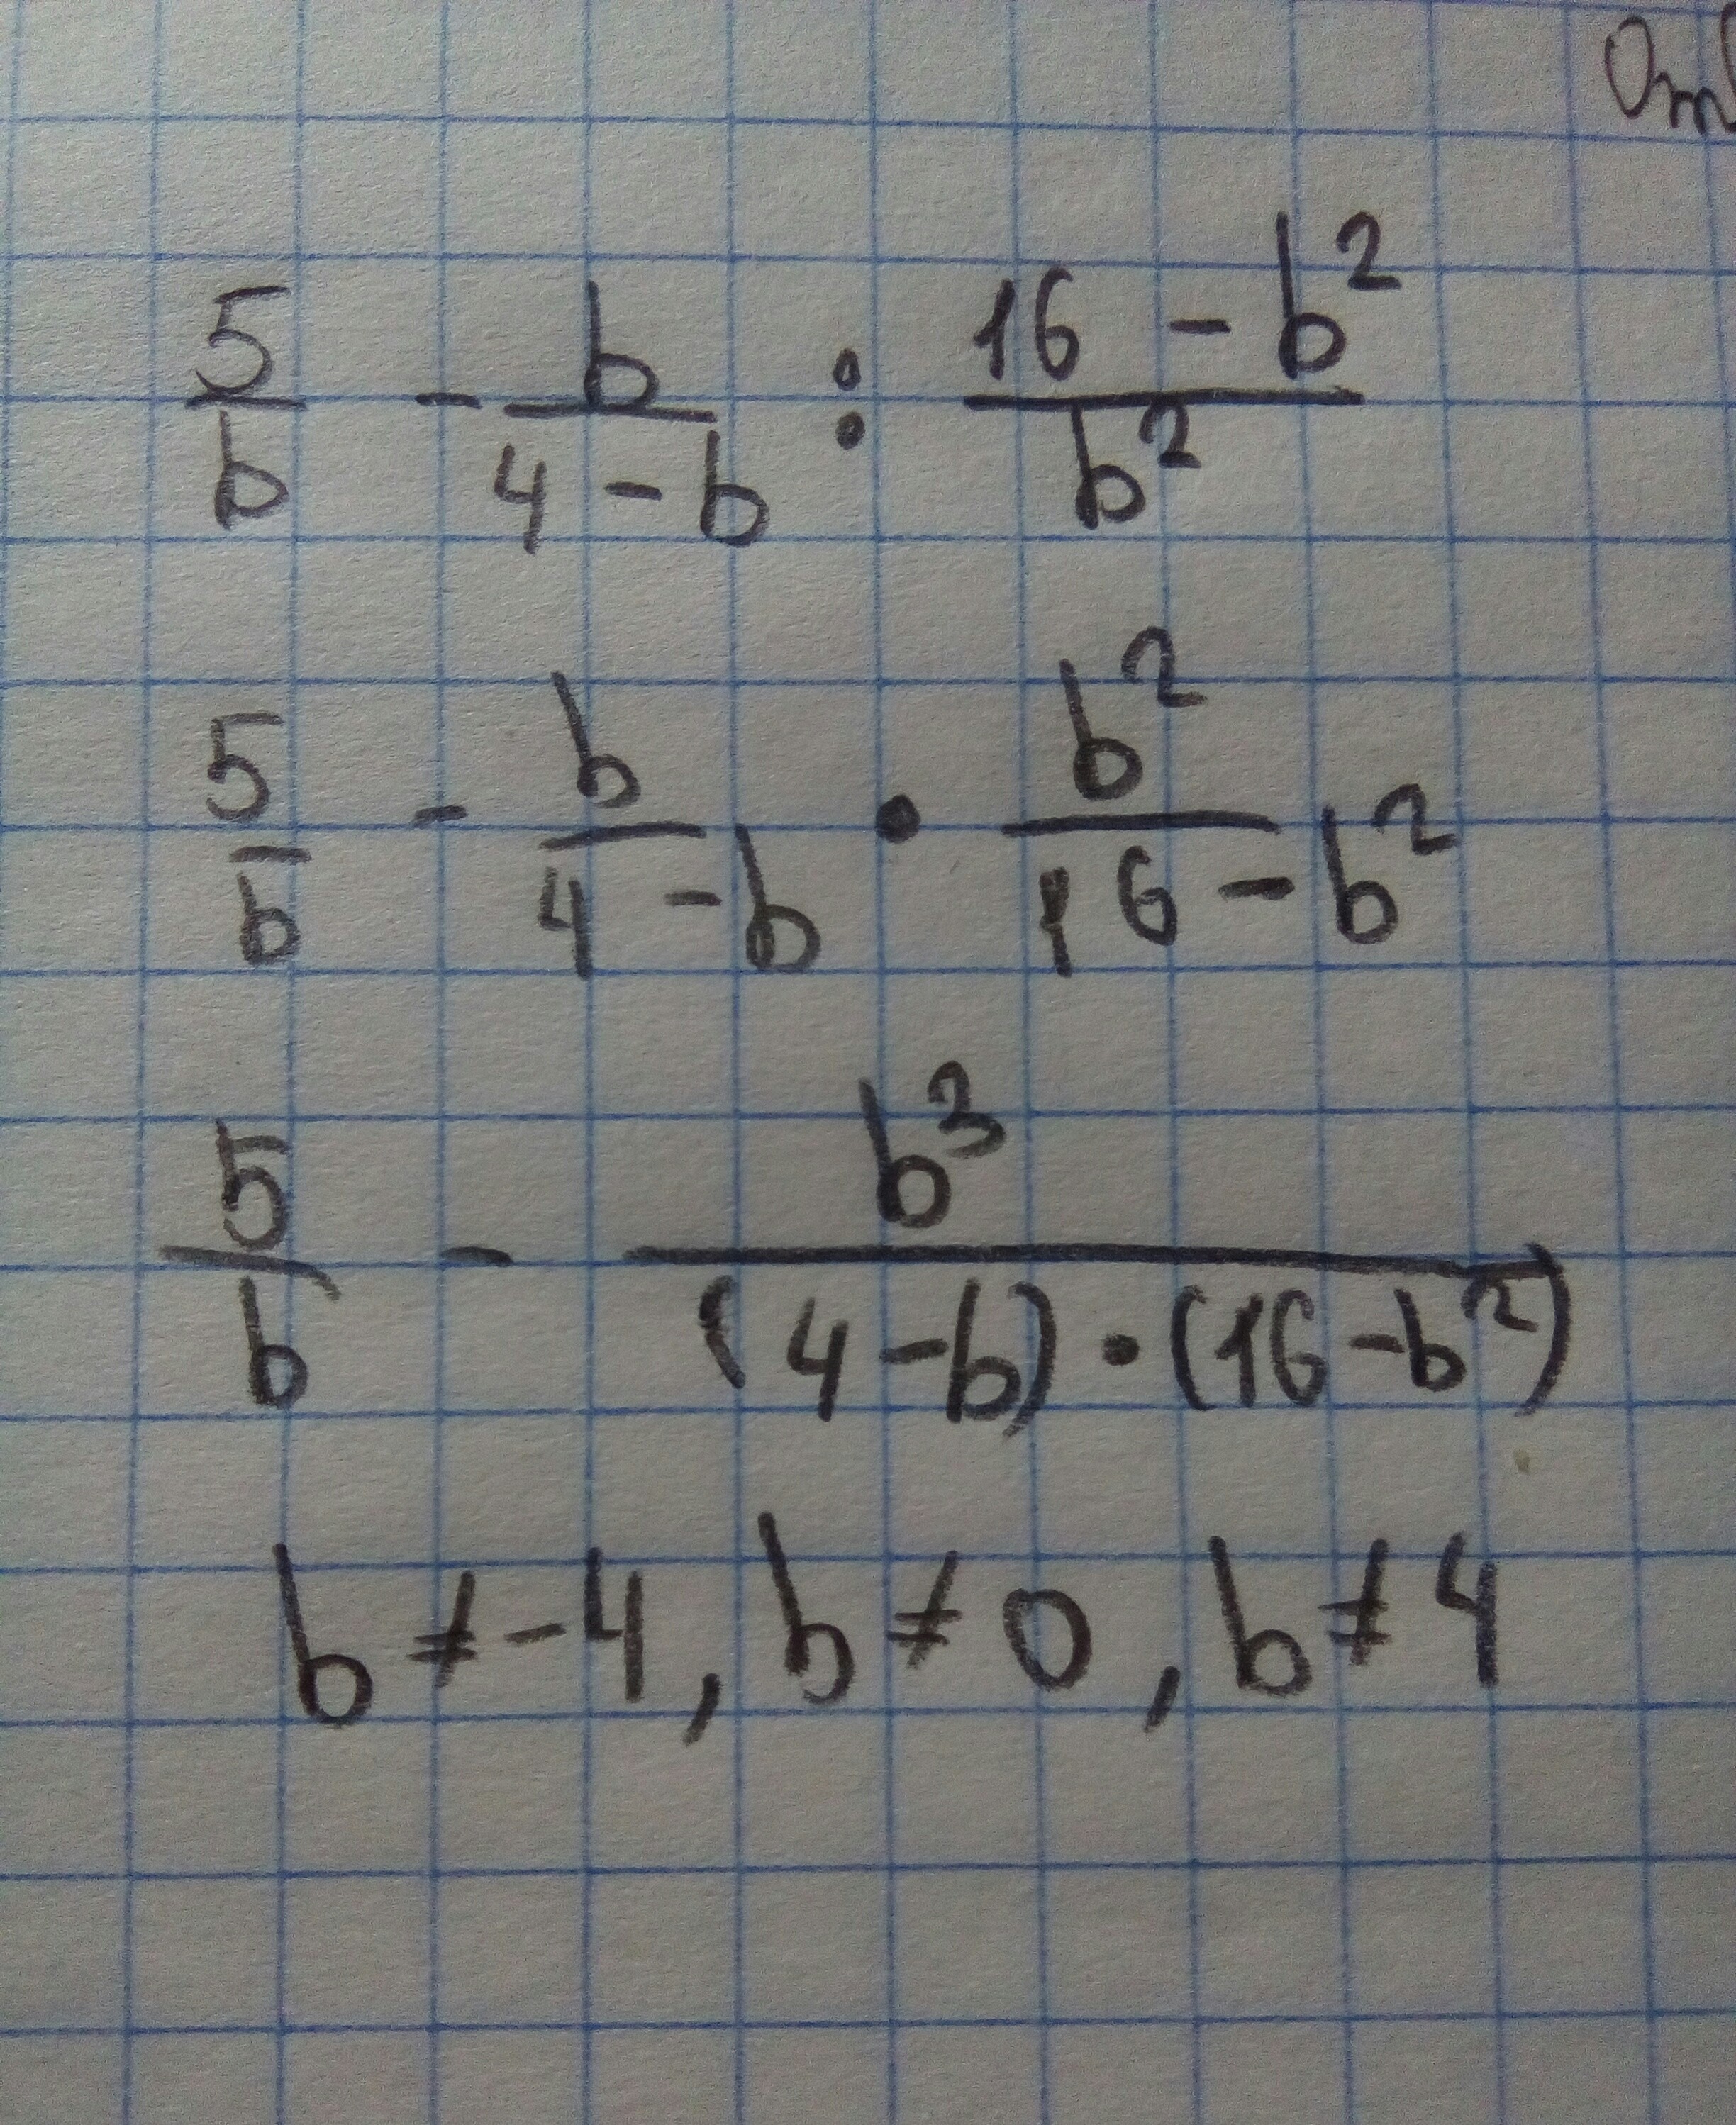 5/b - b/(4 - b) : (16 - b²)/b²
5/b - b/(4 - b) • b²/(16 - b²)
5/b - b³/((4 - b) • (16 - b²))
b ≠ -4, b ≠ 0, b ≠ 4